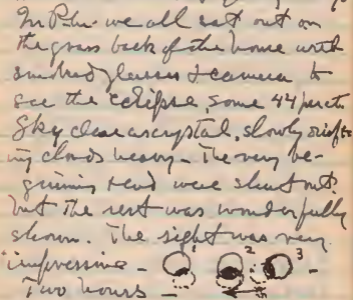 In P.M. we all sat out on
the grass back of the house with
smoked glasses & camera to
see the eclipse, some 44 per cts.
Sky clear as crystal, slowly drift-
ing clouds heavy - The very be-
ginning & end were shut out
but the rest was wonderfully
shown. The sight was very
impressive - 1 2 3 -
Two hours -